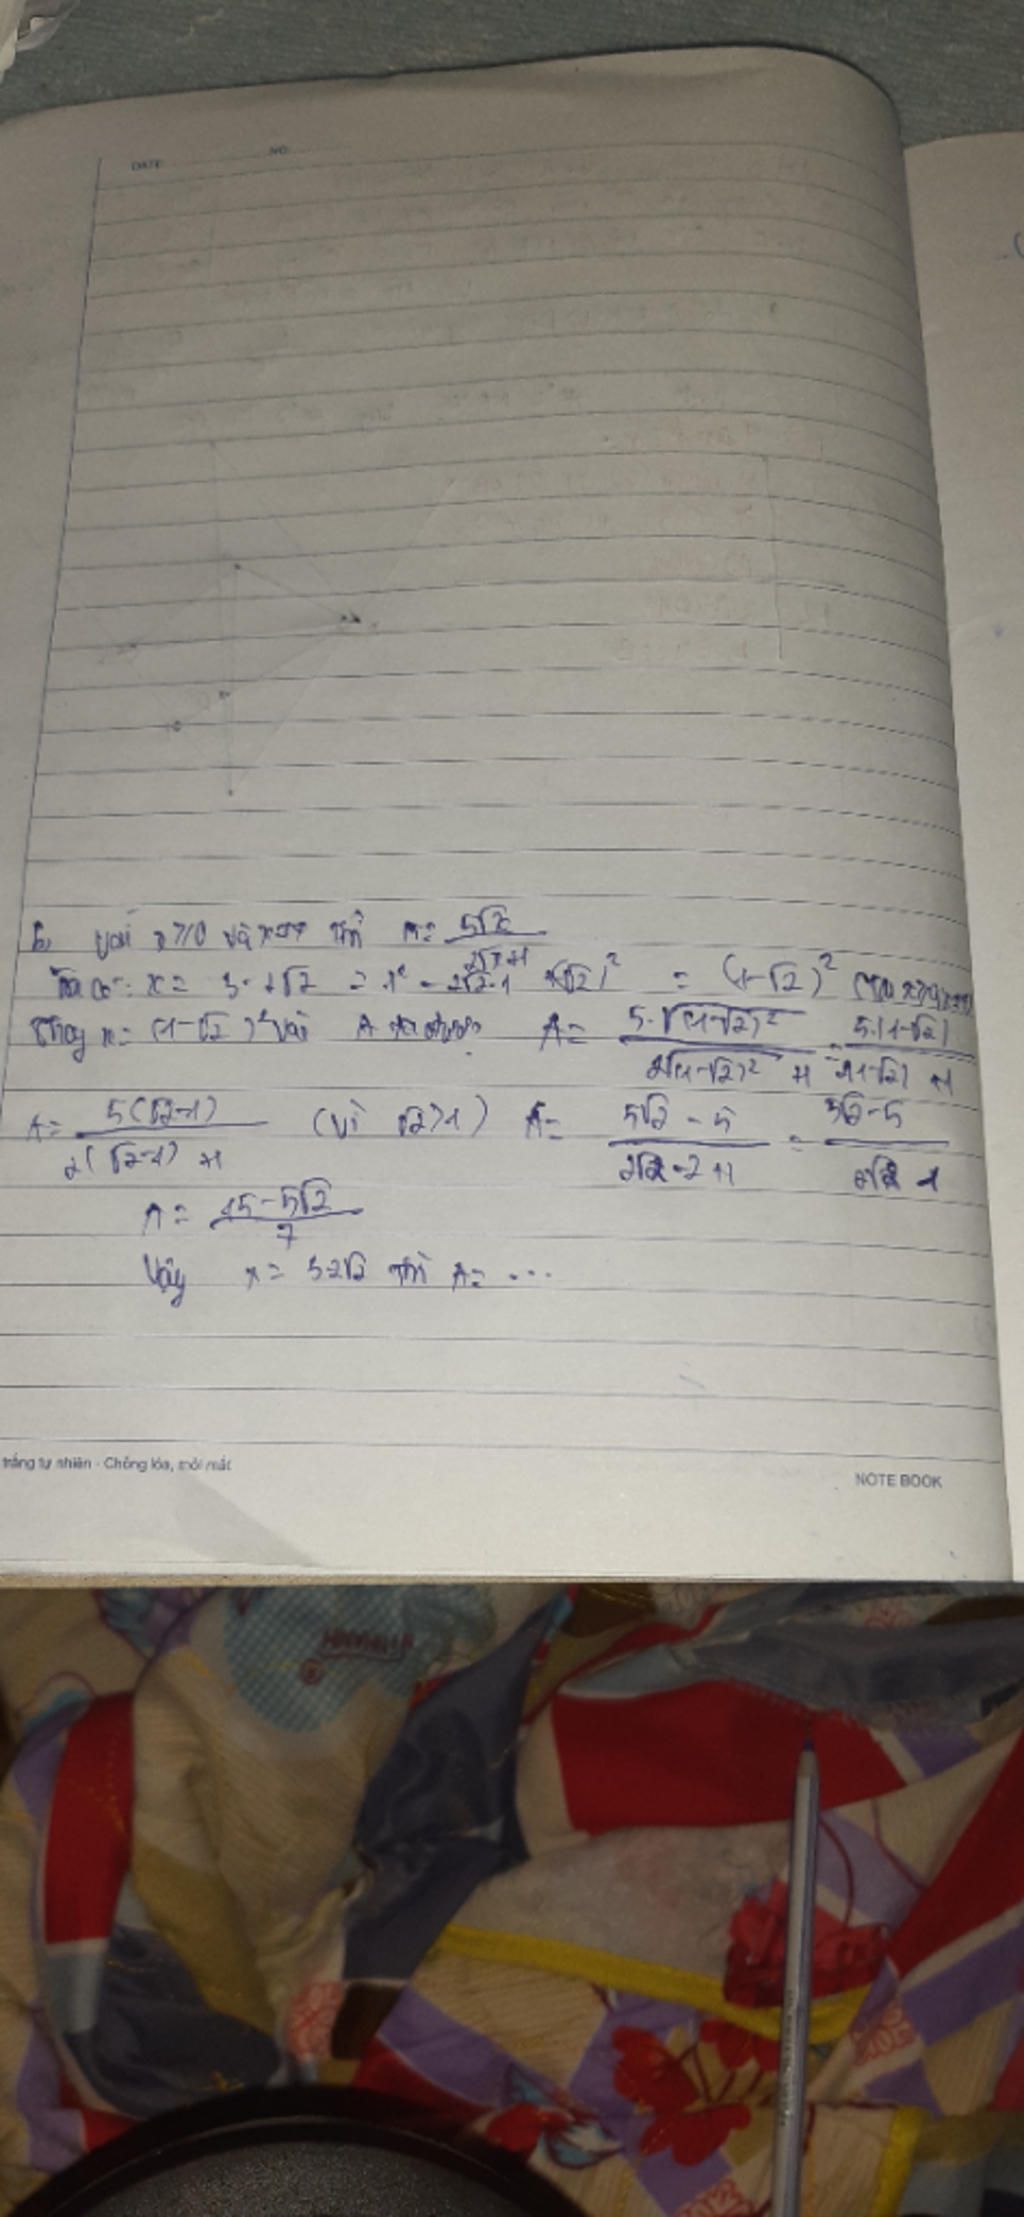 DATE NO
b, với x ≥ 0 và thì A = 5√x / 2√x+1
Ta có: x = 3 - 2√2 = 1² - 2√2.1 + (√2)² = (1-√2)²
Thay x = (1-√2)² vào A ta được A = 5.√(1-√2)² / 2√(1-√2)² +1 = 5.|1-√2| / 2|1-√2| +1
A = 5(√2-1) / 2(√2-1) +1 (vì √2>1) A = 5√2 - 5 / 2√2 - 2 +1 = 5√2-5 / 2√2 -1
A = 15-5√2 / 7
Vậy x = 3-2√2 thì A = ...
trắng tự nhiên - Chống lóa, mỏi mắt
NOTE BOOK